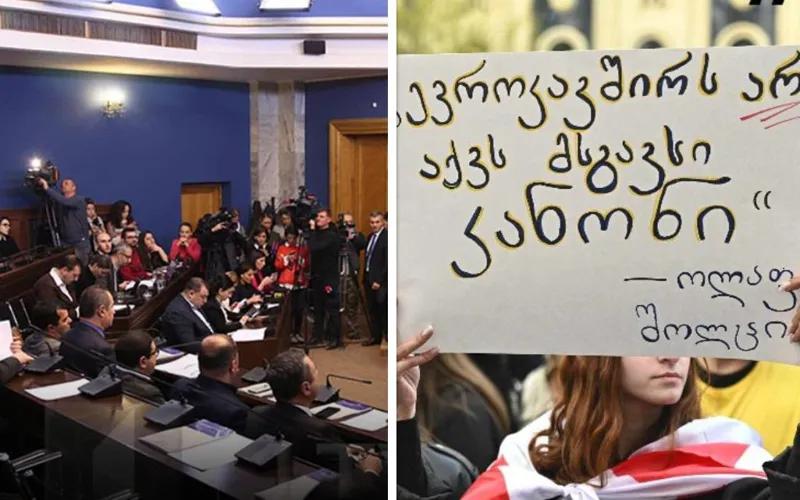 ევროკავშირს არ
აქვს მსგავსი
კანონი“
— ოლაფ
შოლცი